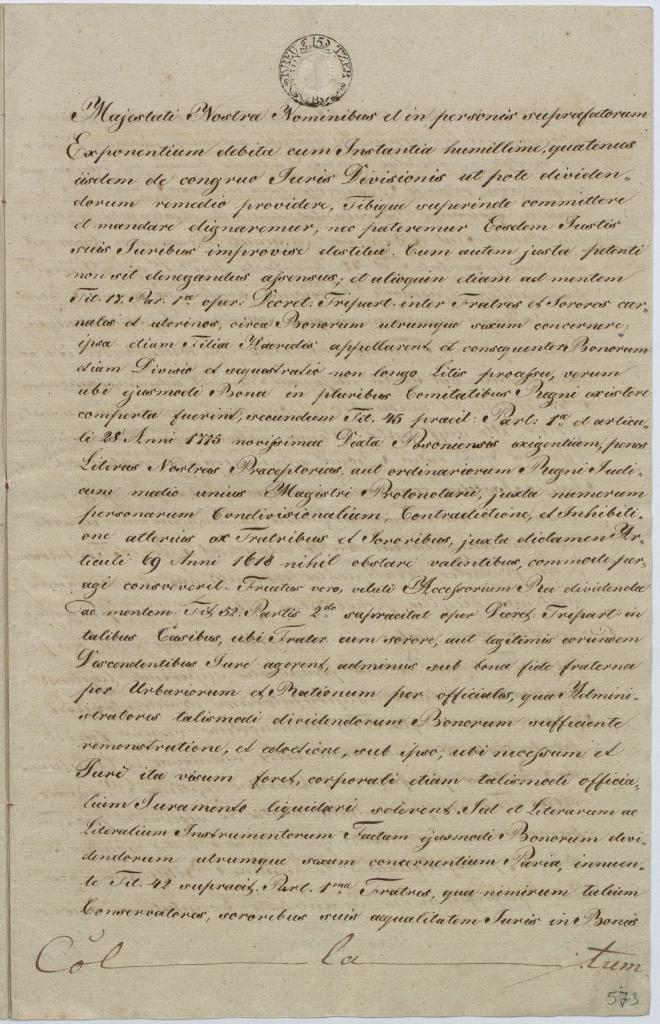 KREUTZER 15
Majestati Nostra Nominibus et in personis suprafatorum
Exponentium debita cum Instantia humillime, quatenus
iisdem de congruo Juris Divisionis ut pote dividen„
dorum remedio providere, Tibique superinde committere
et mandare dignaremur, nec pateremur Eosdem Justis
suis Juribus improvise destitui. Cum autem justa petenti
non sit denegandus assensus, et alioquin etiam ad mentem
Tit. 17. Par. 1ae oper: Decret: Tripart: inter Fratres et Sorores car„
nales et uterinos, circa Bonorum utrumque sexum concernere:
ipsa etiam Filia Haeredes appellarent, et consequenter Bonorum
etiam Divisio et sequastratio non longo Litis processu, verum
ubi ejusmodi Bona in pluribus Comitatibus Regni existere
comperta fuerint, secundum Tit. 45 praecit: Part: 1ae et articu„
li 28i Anni 1715 novissimae Diaeta Posoniensis exigentiam, penes
Literas Nostras Praeceptorias, aut ordinariorum Regni Judi„
cum medio unius Magistri Protonotarii, juxta numerum
personarum Condivisionalium, Contradictione, et Inhibiti„
one alterius ex Fratribus et Sororibus, juxta dictamen Ar„
ticuli 69 Anni 1618 nihil obstare valentibus, commode per„
agi consveverit. Fructus vero, veluti Accessorium Rei dividendae
ad mentem Tit. 52. Partis 2dae supracitat oper Decret. Tripart: in
talibus Casibus, ubi Frater cum sorore, aut legitimis eorundem
Descendentibus Jure agerent, adminus sub bona fide fraterna
per Urbariorum et Rationum per officiales, qua Admini„
stratores talismodi dividendorum Bonorum sufficiente
remonstratione, et edoctione, sub ipso, ubi necessum et
Juri ita visum foret, corporali etiam talismodi officia„
lium Juramento liquidari solerent. Sed et Literarum ac
Literalium Instrumentorum Factum ejusmodi Bonorum divi„
dendorum utrumque sexum concernentium Paria, innuen„
te Tit. 42 supracit. Part. 1ma Fratres, qua nimirum talium
Conservatores, sororibus suis aequalitatem Juris in Bonis
Col la tum
573